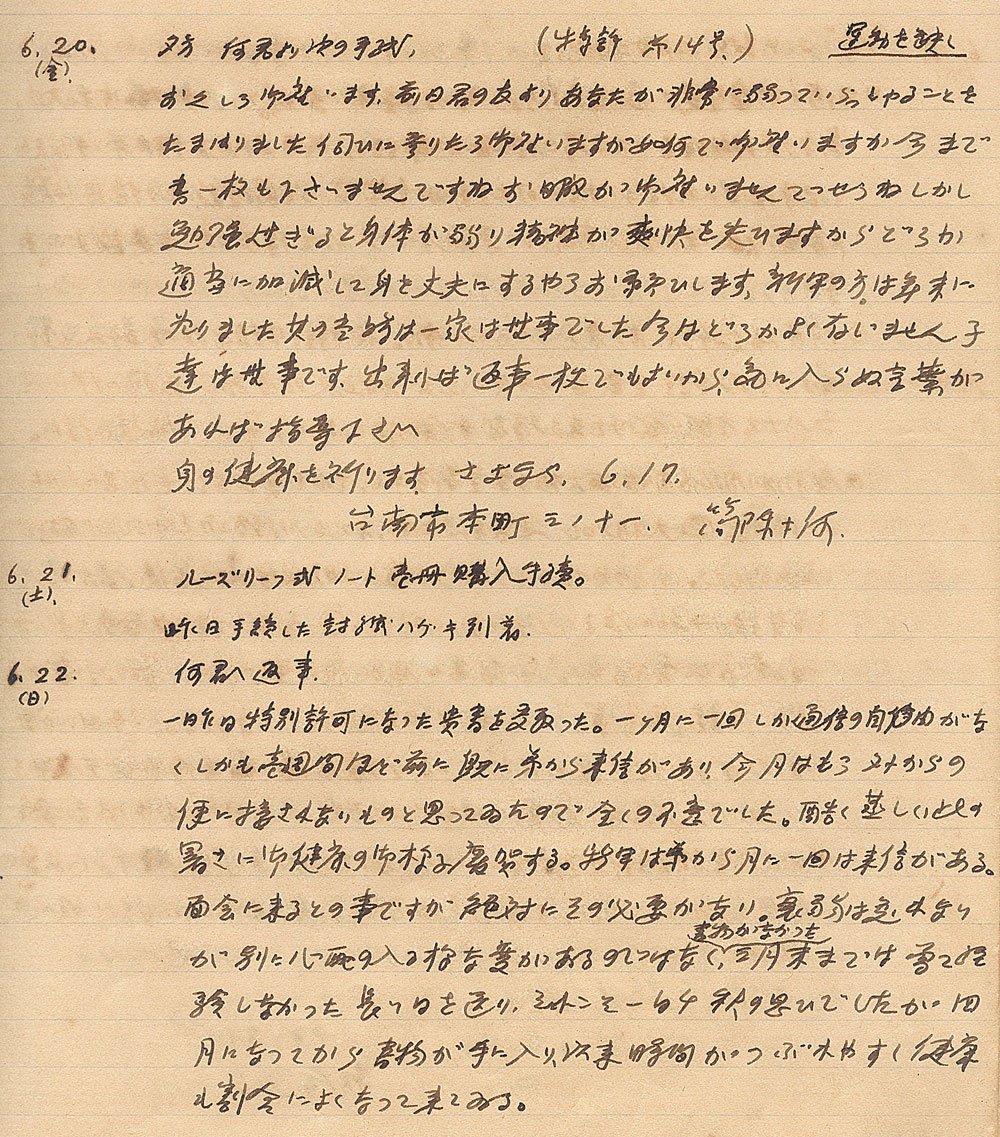 6.20. (金) 夕方 何君より次の手紙. (特許 第14号.) 運動を缺く
お久しう御座います. 前日君の友より あなたが非常に弱っていらっしゃることを
たまはりました 伺ひに参りたう御座いますが如何で御座いますか 今まで
書一枚も下さいませんですね お暇が御座いませんでせうね しかし
勉強せきると身体が弱り精神が爽快を失ひますからどうか
適当に加減して身を丈夫にするやうお願ひします. 新年の方は年末に
なりました 其の当時は一家は無事でした 今はどうかよくないません 子
達は無事です. 出来れば返事一枚でもよいから, 気に入らぬ言葉が
あれば指導下さい
身の健康を祈ります. さよなら. 6.17.
台南市本町三ノ十一.
6.21. (土). ルーズリーフ式ノート壱冊購入手續。
昨日手續した封緘ハガキ到着.
6.22. (日) 何君へ返事.
一昨日特別許可になった貴書を受取った。一ヶ月に一回しか通信の自由がな
くしかも壱週間ほど前に既に弟から来信があり, 今月はもう外からの
便に接されないものと思ってゐたので全くの不意でした。酷く蒸しい此の
暑さに御健康の御様子慶賀する。弟から月に一回は来信がある。
面会に来るとの事ですが絶対にその必要がない。衰弱は
書物がなかった
が別に心配の入る様な憂があるのではなく, 三月末までは曽て経
験しなかった長い日を送り, 一日千秋の思ひでしたが 四
月になってから書物が手に入り, 以来時間がつぶれやすく健康
も割合によくなって来てゐる。